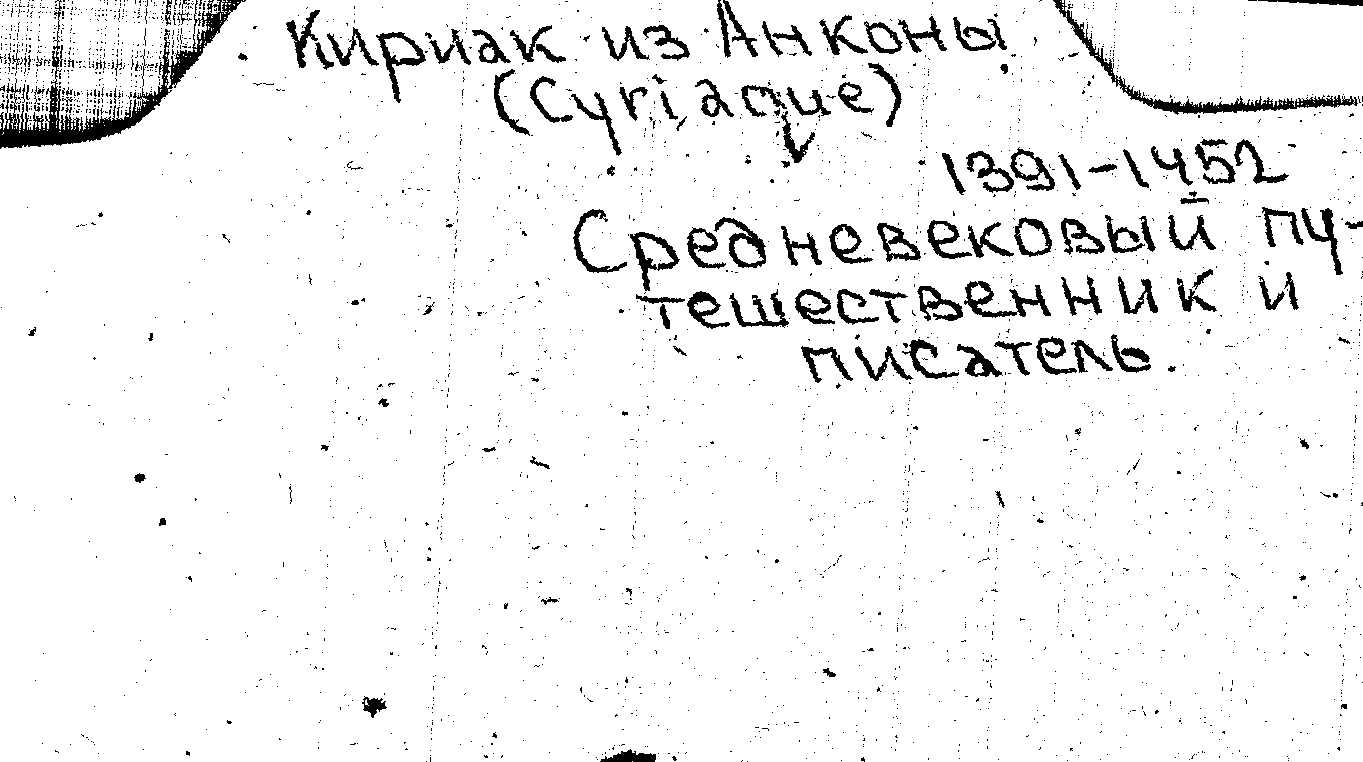 Кириак из Анконы
(Cyriaque)
1391-1452
Средневековый пу-
тешественник и
писатель.